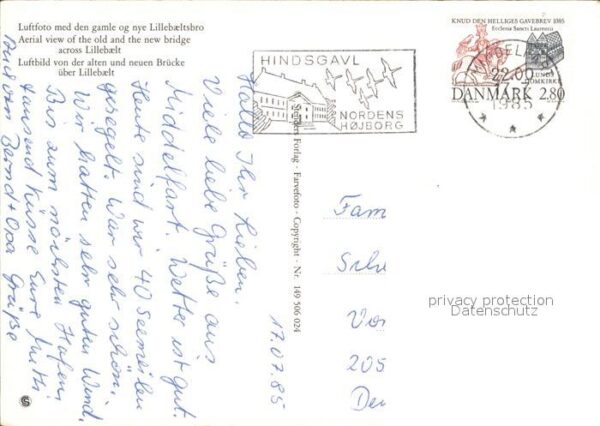 Luftfoto med den gamle og nye Lillebæltsbro
Aerial view of the old and the new bridge
across Lillebælt
Luftbild von der alten und neuen Brücke
über Lillebælt
HINDSGAVL
NORDENS
HØJBORG
KNUD DEN HELLIGES GAVEBREV 1085
Ecclesia Sancti Laurentii
LUNDS
DOMKIRKE
DANMARK 2.80
22.00
1985
Stenders Forlag · Farvefoto · Copyright · Nr. 149 506 024
17.07.85
Hallo Ihr Lieben,
Viele liebe Grüße aus
Middelfart. Wetter ist gut.
Heute sind wir 40 Seemeilen
gesegelt. War sehr schön.
Wir hatten sehr guten Wind.
Bis zum nächsten Hafen,
tausend Küsse Eure Mutti
und von Bernd + Opa Grüße
Fam
Schr
Vor
205
Den
privacy protection
Datenschutz